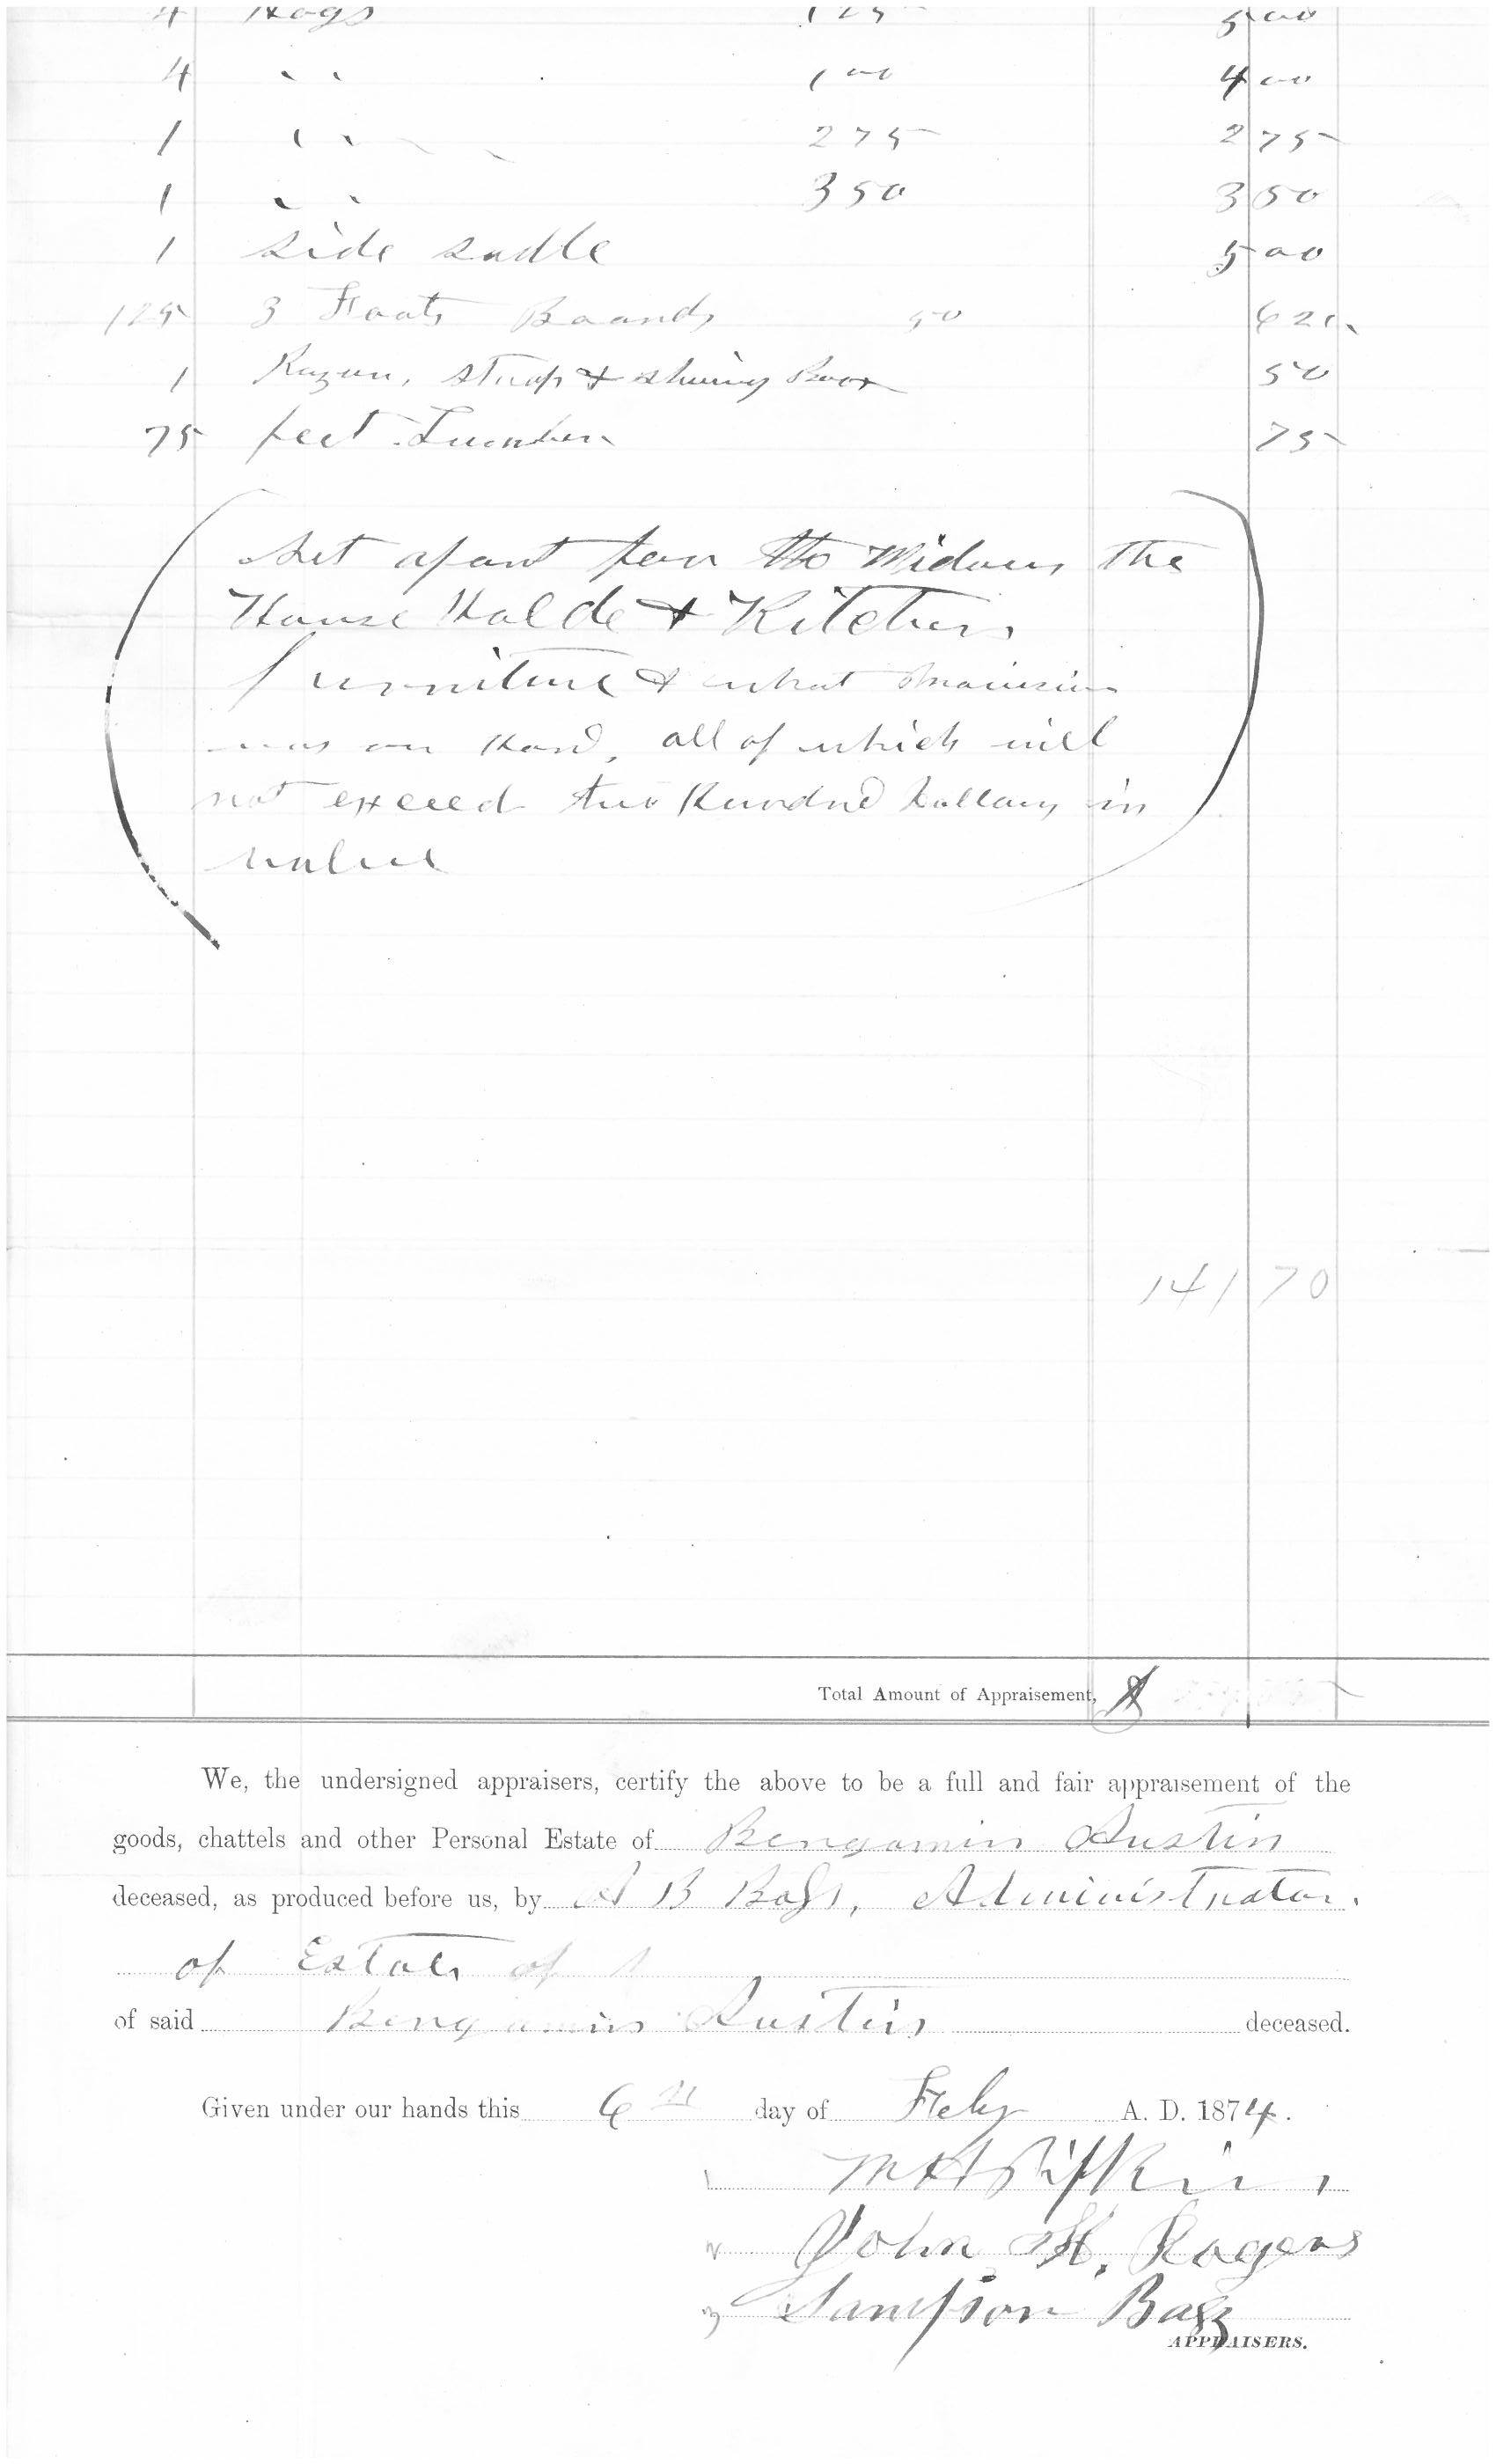 4 Hogs 125 5 00
4 " 1 00 4 00
1 " 275 2 75
1 " 350 3 50
1 Side Sadle 5 00
125 3 Foots Boards 50 62
1 Razor, strop & shaving Box 50
75 feet Lumber 75
Set apart for the Widow, the
House Holde & Kitchen
furniture & what provision
was on Hand, all of which will
not exceed two Hundred Dollars in
value
141 70
Total Amount of Appraisement, $
We, the undersigned appraisers, certify the above to be a full and fair appraisement of the
goods, chattels and other Personal Estate of Bengamin Austin
deceased, as produced before us, by A B Bags, Administrator
of Estate of
of said Bengamin Austin deceased.
Given under our hands this 6th day of Feby A. D. 1874.
1 M H Pipkin
2 John H. Rogers
3 Sampson Bags
APPRAISERS.